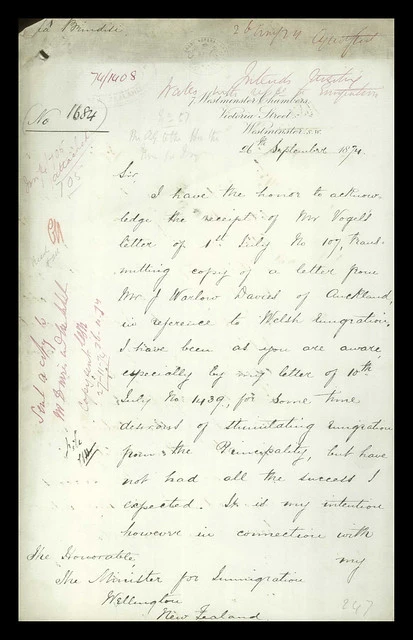 74/1408
No 1684
7 Westminster Chambers,
Victoria Street,
Westminster S.W.
26th September 1874
Sir
I have the honor to acknow-
ledge the receipt of Mr Vogel's
letter of 1st July No 107, trans-
mitting copy of a letter from
Mr J Warlow Davies of Auckland,
in reference to Welsh Emigration.
I have been as you are aware,
especially by my letter of 10th
July No 1439, for some time
desirous of stimulating emigration
from the Principality, but have
not had all the success I
expected. It is my intention
however in connection with
my
The Honorable,
The Minister for Immigration
Wellington
New Zealand
Sent a copy to
247